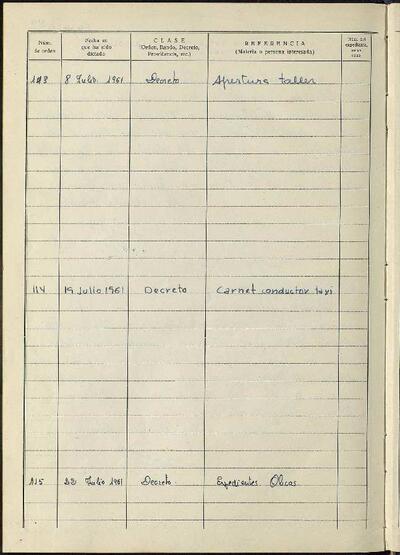 Núm. de orden
Fecha en que ha sido dictado
CLASE (Orden, Bando, Decreto, Providencia, etc.)
REFERENCIA (Materia o persona interesada)
Núm. del expediente, en su caso
113 8 Julio 1961 Decreto Apertura taller
114 19 Julio 1961 Decreto Carnet conductor taxi
115 22 Julio 1961 Decreto Expedientes Obras